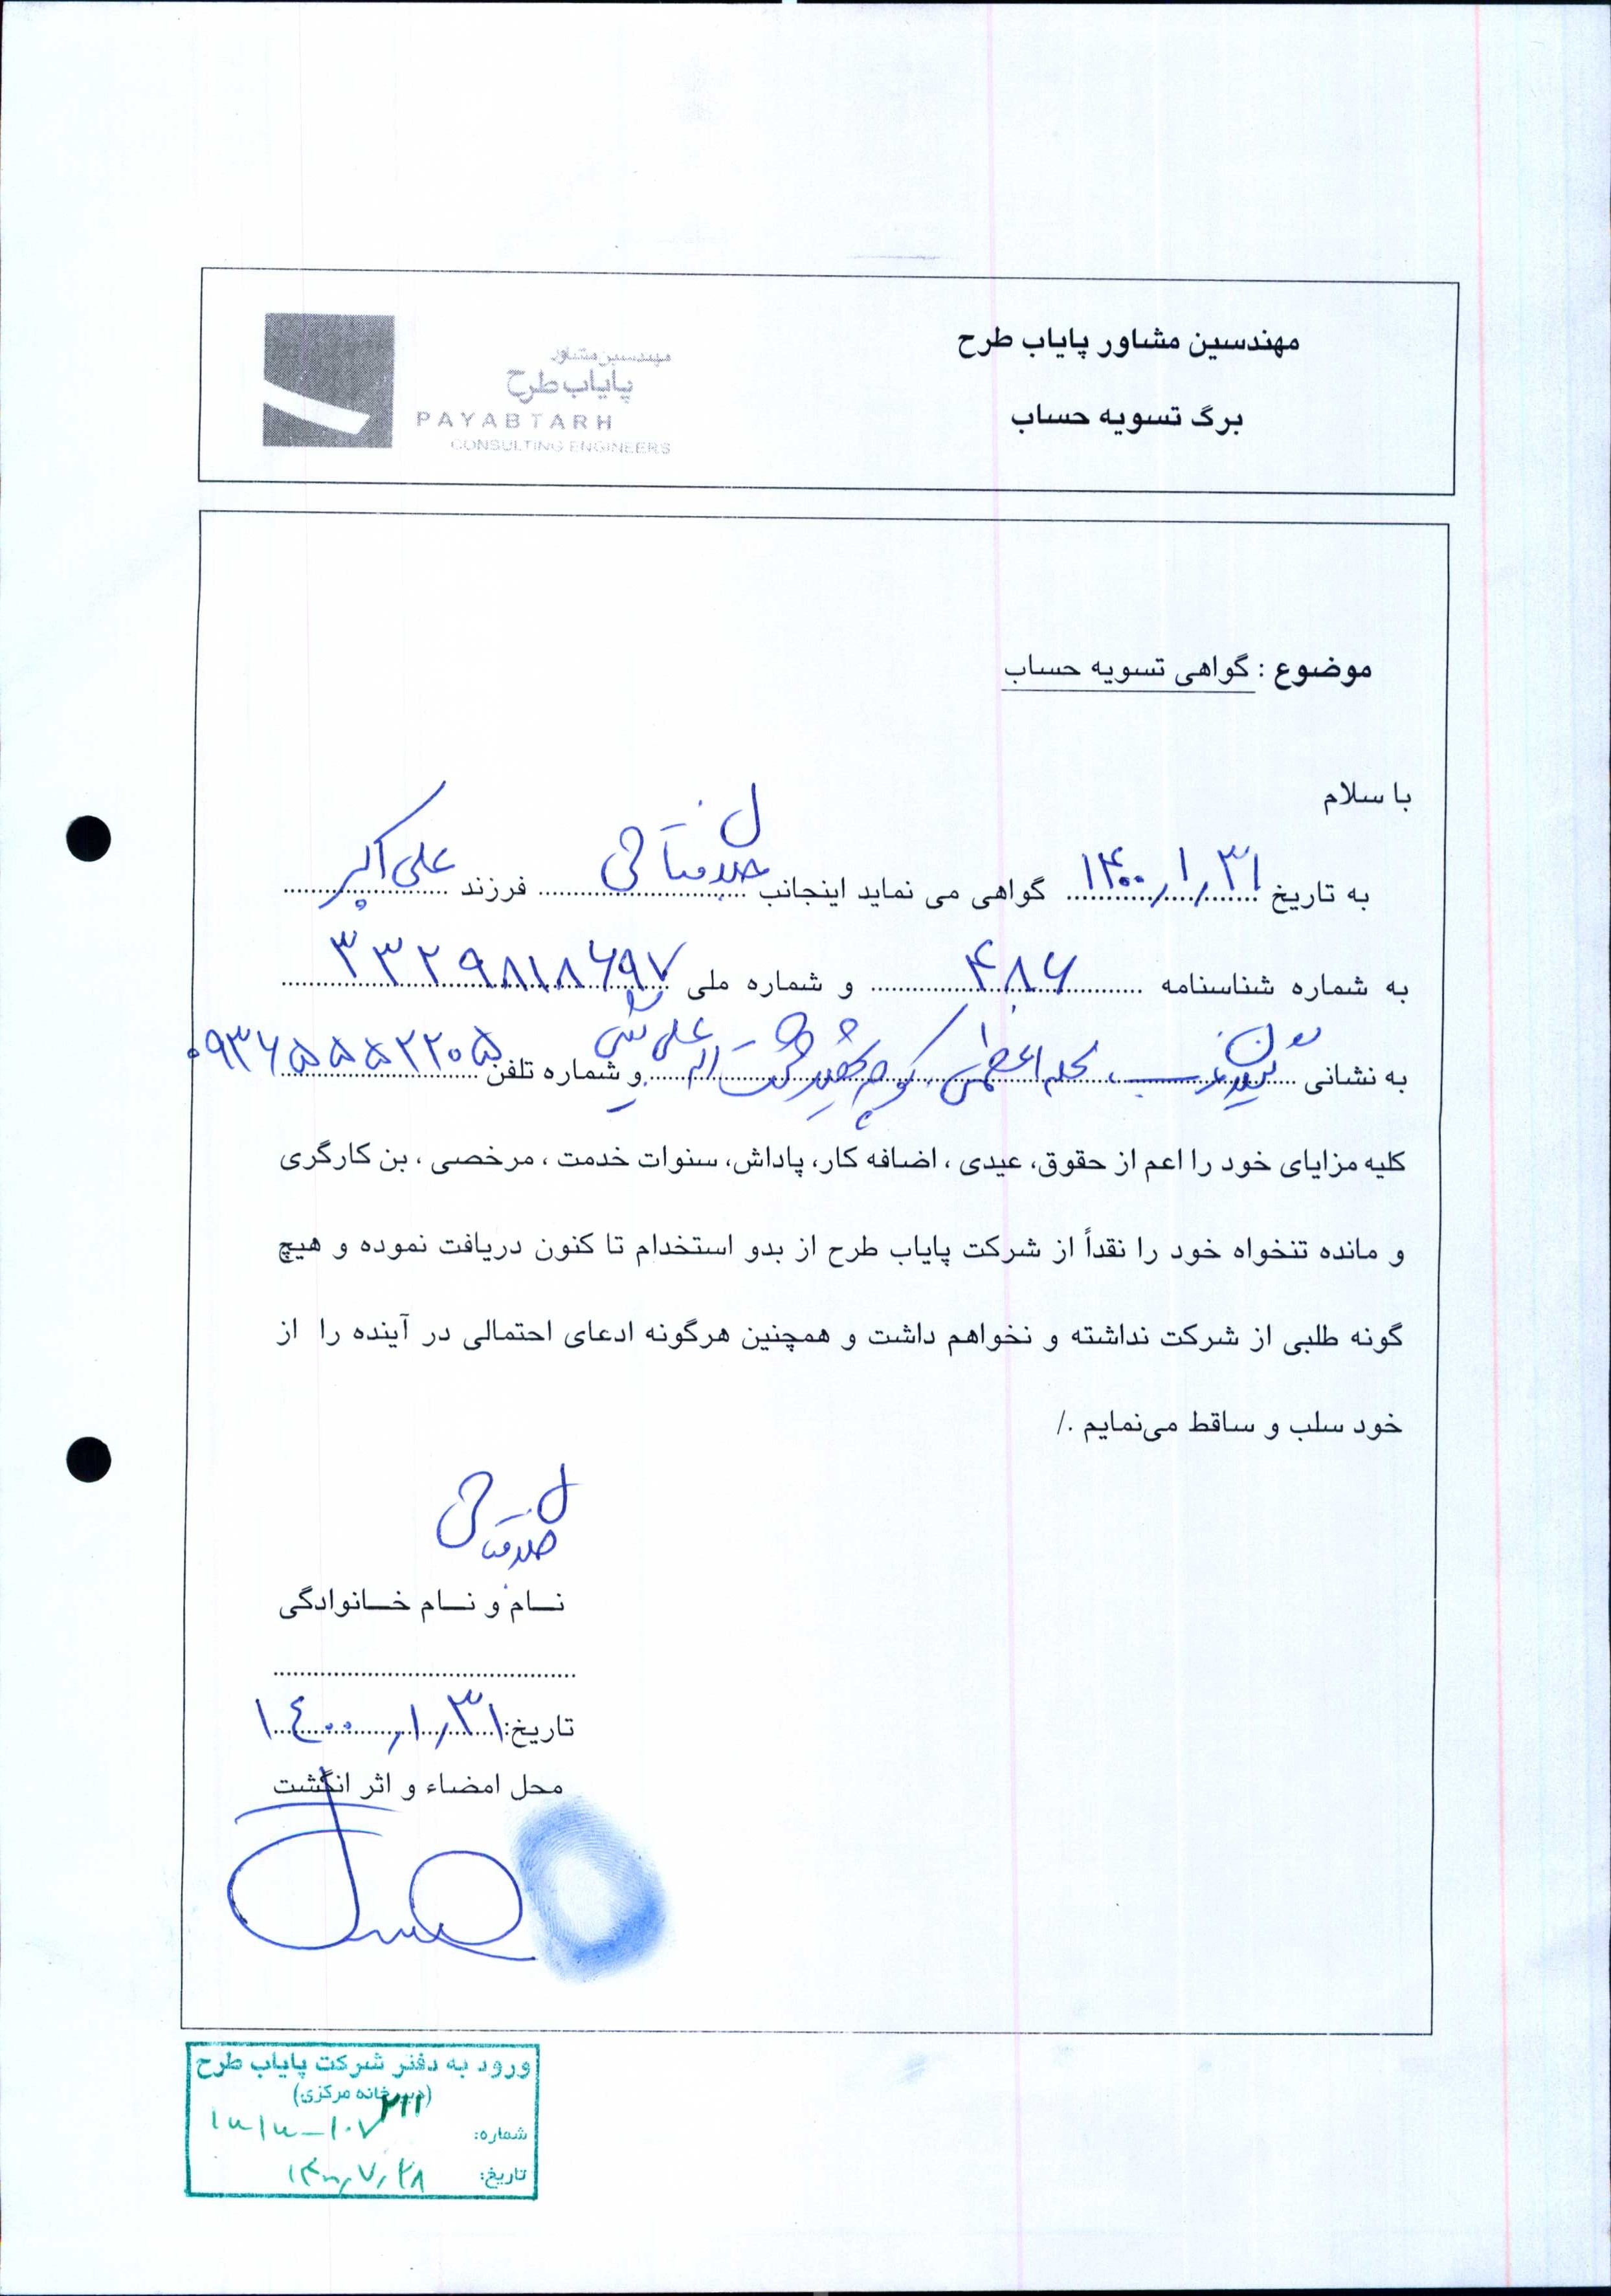 مهندسین مشاور پایاب طرح
برگ تسویه حساب
مهندسین مشاور
پایاب طرح
PAYABTARH
CONSULTING ENGINEERS
موضوع : گواهی تسویه حساب
با سلام
به تاریخ ۱۴۰۰/۱/۳۱ گواهی می نماید اینجانب فرزند علی اکبر
به شماره شناسنامه ۴۸۶ و شماره ملی ۳۳۲۹۸۱۸۶۹۷
به نشانی محله اعظمی کوچه شهید و شماره تلفن ۰۹۳۶۵۵۵۲۲۰۵
کلیه مزایای خود را اعم از حقوق، عیدی ، اضافه کار، پاداش، سنوات خدمت ، مرخصی ، بن کارگری
و مانده تنخواه خود را نقداً از شرکت پایاب طرح از بدو استخدام تا کنون دریافت نموده و هیچ
گونه طلبی از شرکت نداشته و نخواهم داشت و همچنین هرگونه ادعای احتمالی در آینده را از
خود سلب و ساقط می‌نمایم ./
نـــام و نـــام خـــانوادگی
تاریخ: ۱۴۰۰/۱/۳۱
محل امضاء و اثر انگشت
ورود به دفتر شرکت پایاب طرح
(دبیرخانه مرکزی)
۲۱۱
شماره:
تاریخ: ۱۴۰۰/۷/۲۸